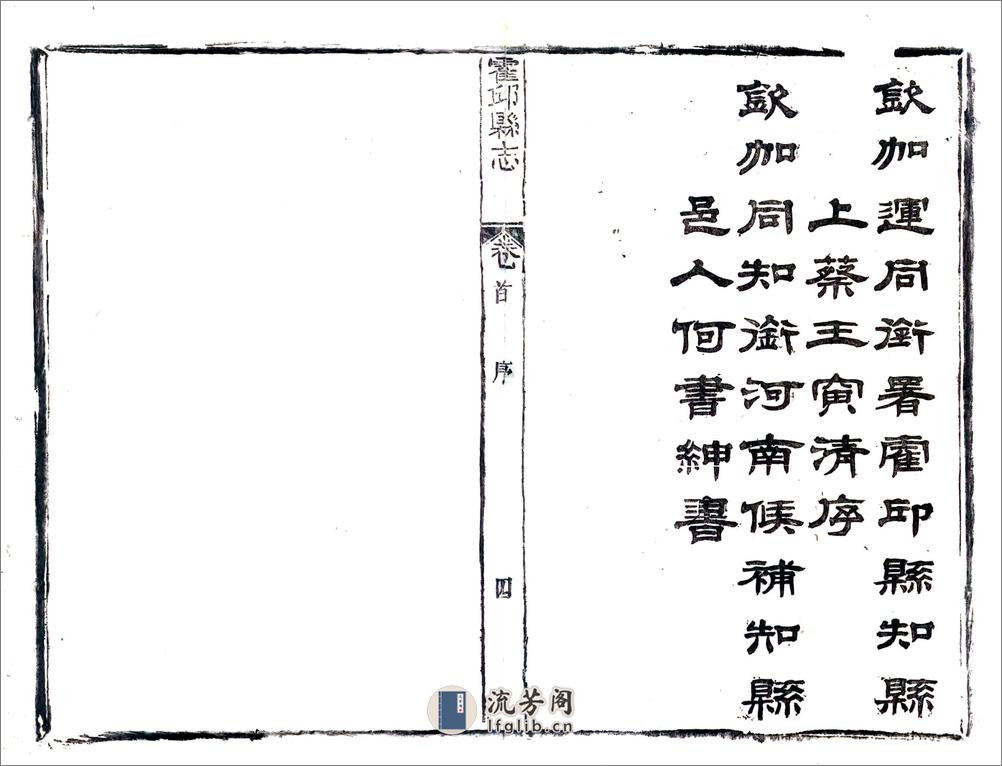 欽加運同銜署霍邱縣知縣
上蔡王寅清序
欽加同知銜河南候補知縣
邑人何書紳書
霍邱縣志
卷首
序
四
流芳阁
lfglib.cn